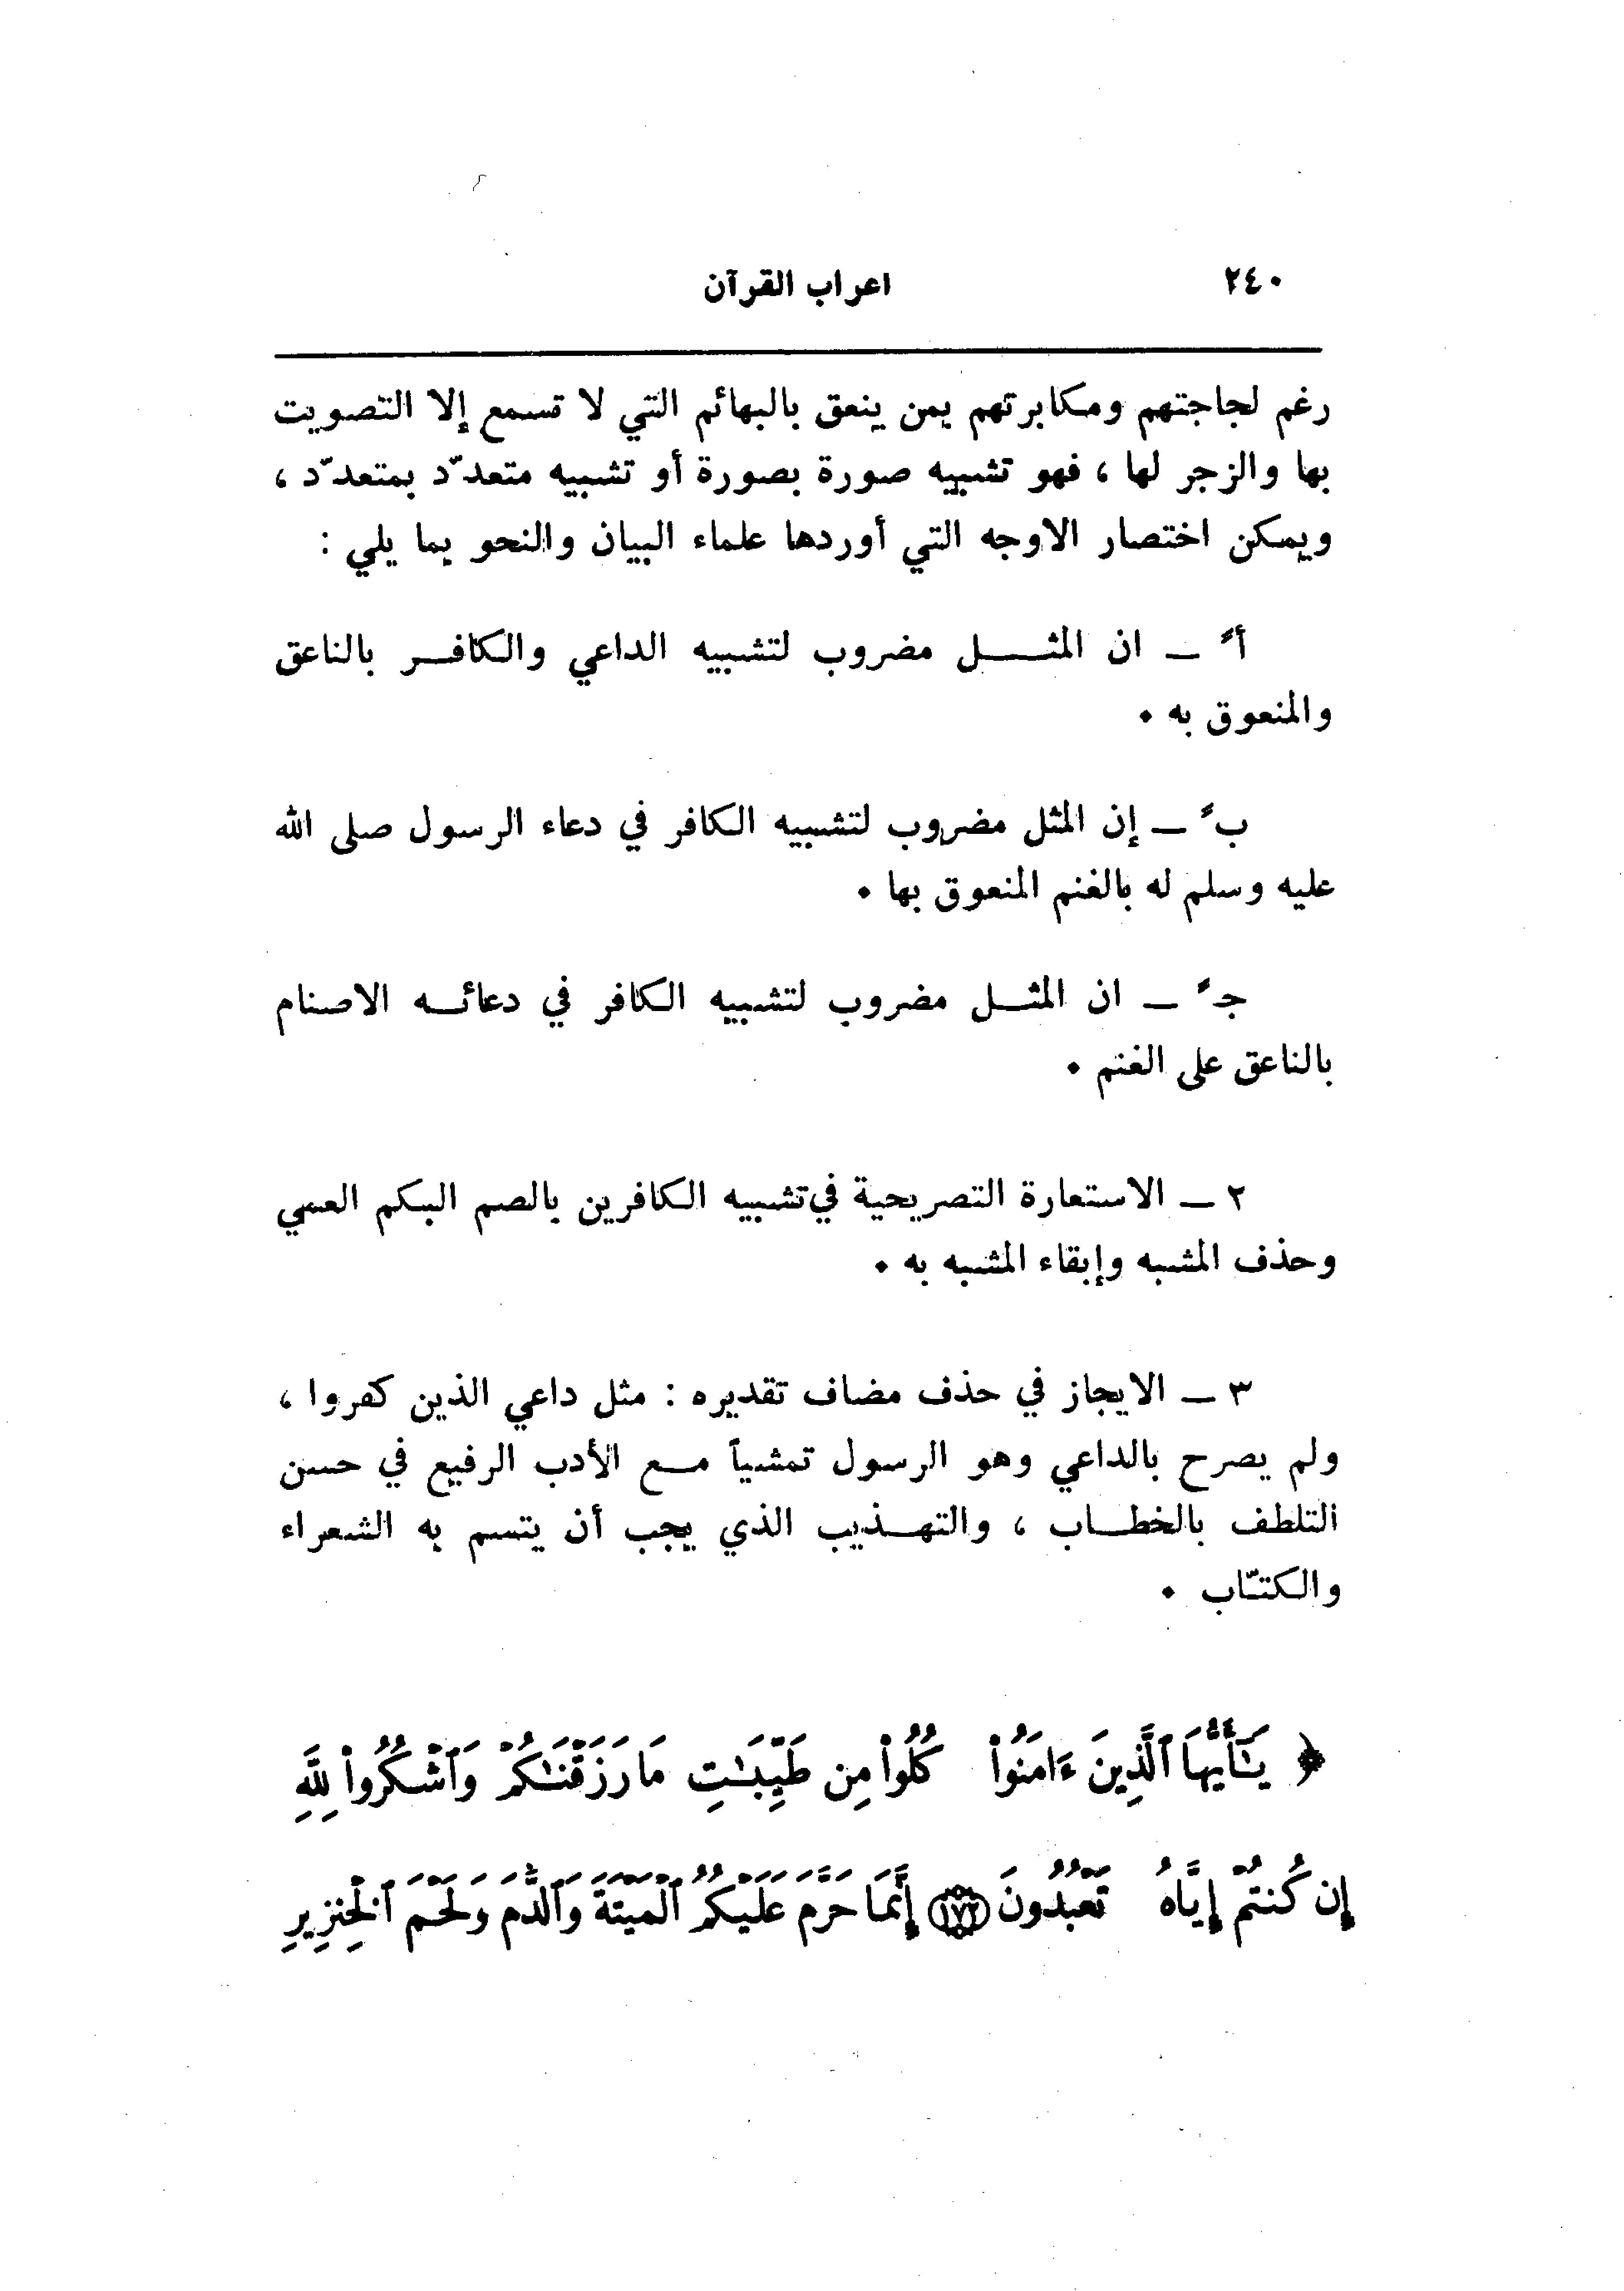 ٢٤٠ اعراب القرآن
رغم لجاجتهم ومكابرتهم بمن ينعق بالبهائم التي لا تسمع إلا التصويت
بها والزجر لها ، فهو تشبيه صورة بصورة أو تشبيه متعدّد بمتعدّد ،
ويمكن اختصار الاوجه التي أوردها علماء البيان والنحو بما يلي :
أً ـ ان المثـــل مضروب لتشبيه الداعي والكافـر بالناعق
والمنعوق به ٠
بً ـ إن المثل مضروب لتشبيه الكافر في دعاء الرسول صلى الله
عليه وسلم له بالغنم المنعوق بها ٠
جـً ـ ان المثـل مضروب لتشبيه الكافر في دعائـه الاصنام
بالناعق على الغنم ٠
٢ ـ الاستعارة التصريحية في تشبيه الكافرين بالصم البكم العمي
وحذف المشبه وإبقاء المشبه به ٠
٣ ـ الايجاز في حذف مضاف تقديره : مثل داعي الذين كفروا ،
ولم يصرح بالداعي وهو الرسول تمشياً مـع الأدب الرفيع في حسن
التلطف بالخطـاب ، والتهـذيب الذي يجب أن يتسم به الشعراء
والكتّاب ٠
﴿ يَـٰٓأَيُّهَا ٱلَّذِينَ ءَامَنُوا۟ كُلُوا۟ مِن طَيِّبَـٰتِ مَا رَزَقْنَـٰكُمْ وَٱشْكُرُوا۟ لِلَّهِ
إِن كُنتُمْ إِيَّاهُ تَعْبُدُونَ ١٧٢ إِنَّمَا حَرَّمَ عَلَيْكُمُ ٱلْمَيْتَةَ وَٱلدَّمَ وَلَحْمَ ٱلْخِنزِيرِ